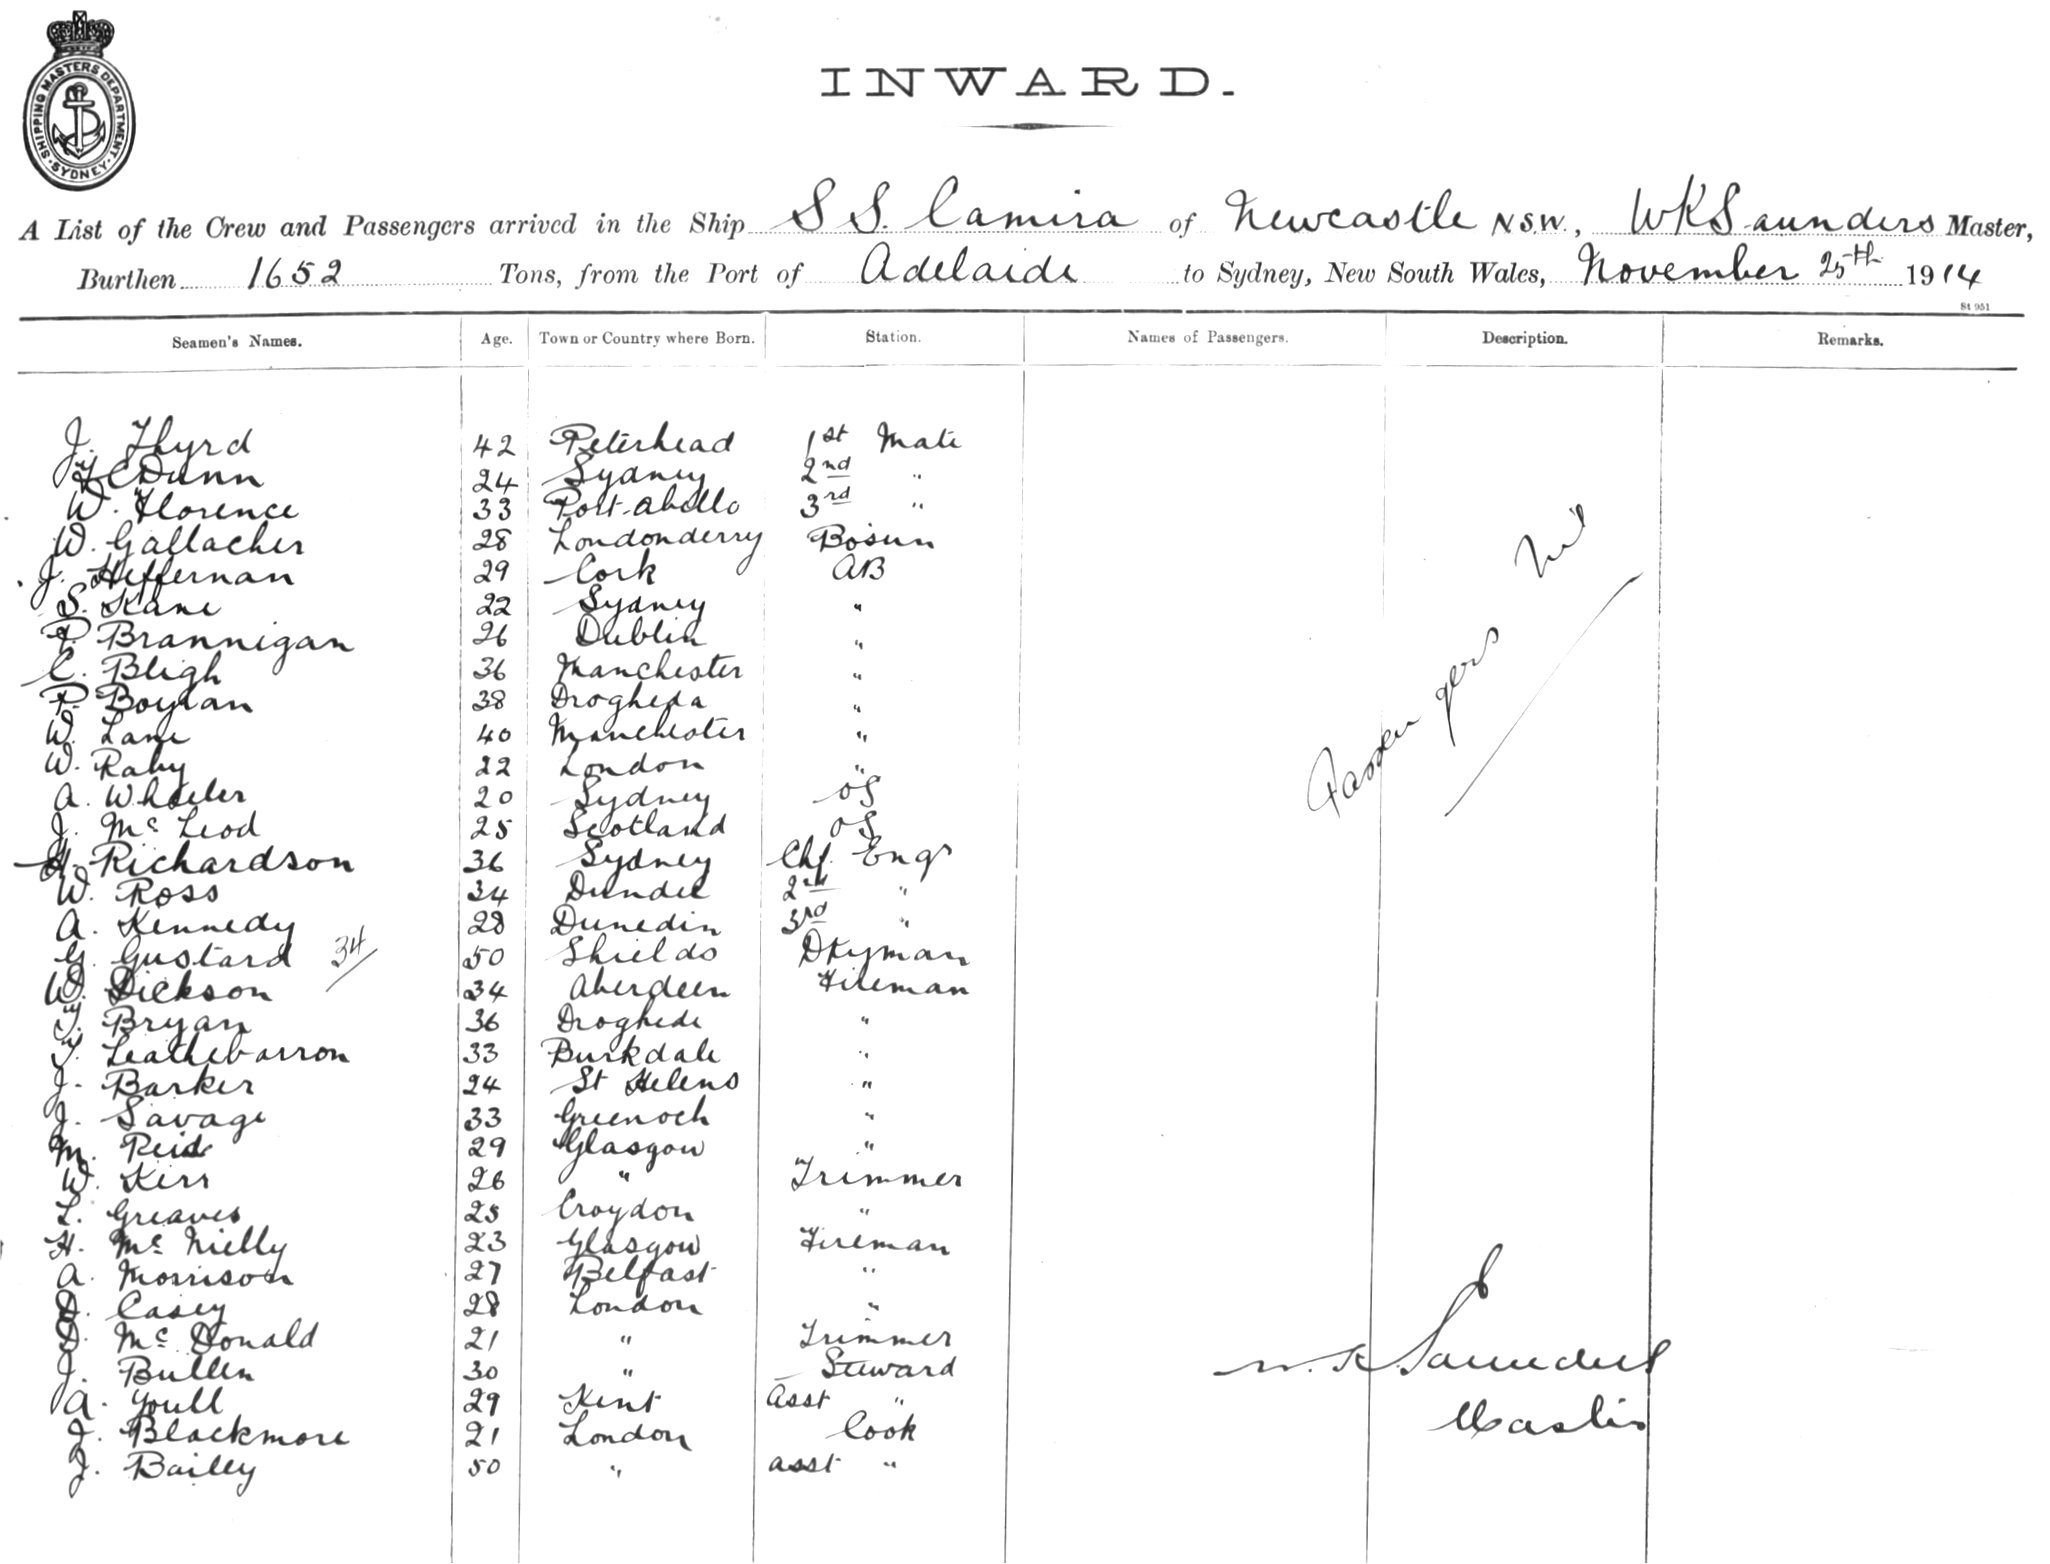 SHIPPING MASTERS DEPARTMENT. SYDNEY.
INWARD.
A List of the Crew and Passengers arrived in the Ship S S. Camira of Newcastle N.S.W., WKSaunders Master,
Burthen 1652 Tons, from the Port of Adelaide to Sydney, New South Wales, November 25th 1914
St 951
Seamen's Names. Age. Town or Country where Born. Station. Names of Passengers. Description. Remarks.
J. Thyrd 42 Peterhead 1st Mate
Dunn 24 Sydney 2nd "
W. Florence 33 Port-abello 3rd "
W. Gallacher 28 Londonderry Bosun
J. Heffernan 29 Cork AB
S. Kane 22 Sydney "
P. Brannigan 26 Dublin "
C. Bligh 36 Manchester "
P. Boylan 38 Drogheda "
W. Lane 40 Manchester "
W. Raby 22 London "
A. Wheeler 20 Sydney OS
J. Mc Leod 25 Scotland OS
H. Richardson 36 Sydney Chf. Engr
W. Ross 34 Dundee 2nd "
A. Kennedy 28 Dunedin 3rd "
G. Gustard 34 50 Shields Dkyman
W. Dickson 34 Aberdeen Fireman
T. Bryan 36 Droghede "
T. Leathebarron 33 Burkdale "
J. Barker 24 St Helens "
J. Savage 33 Greenock "
M. Reid 29 Glasgow "
W. Kerr 26 " Trimmer
L. Greaves 25 Croydon "
H. Mc Nielly 23 Glasgow Fireman
A. Morrison 27 Belfast "
D. Casey 28 London "
D. Mc Donald 21 " Trimmer
J. Bullen 30 " Steward
A. Youll 29 Kent Asst "
J. Blackmore 21 London Cook
J. Bailey 50 " asst "
Passengers Nil
W. K. Saunders
Master